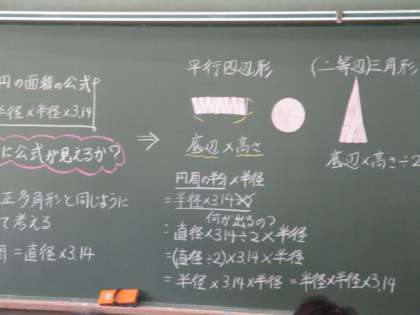 円の面積の公式
半径×半径×3.14
に公式が見えるか?
正多角形と同じように
て考える
周=直径×3.14
⇒
平行四辺形
底辺×高さ
円周の半分×半径
=半径×3.14
何が出るの?
=直径×3.14÷2×半径
=(直径÷2)×3.14×半径
=半径×3.14×半径=半径×半径×3.14
(二等辺)三角形
底辺×高さ÷2